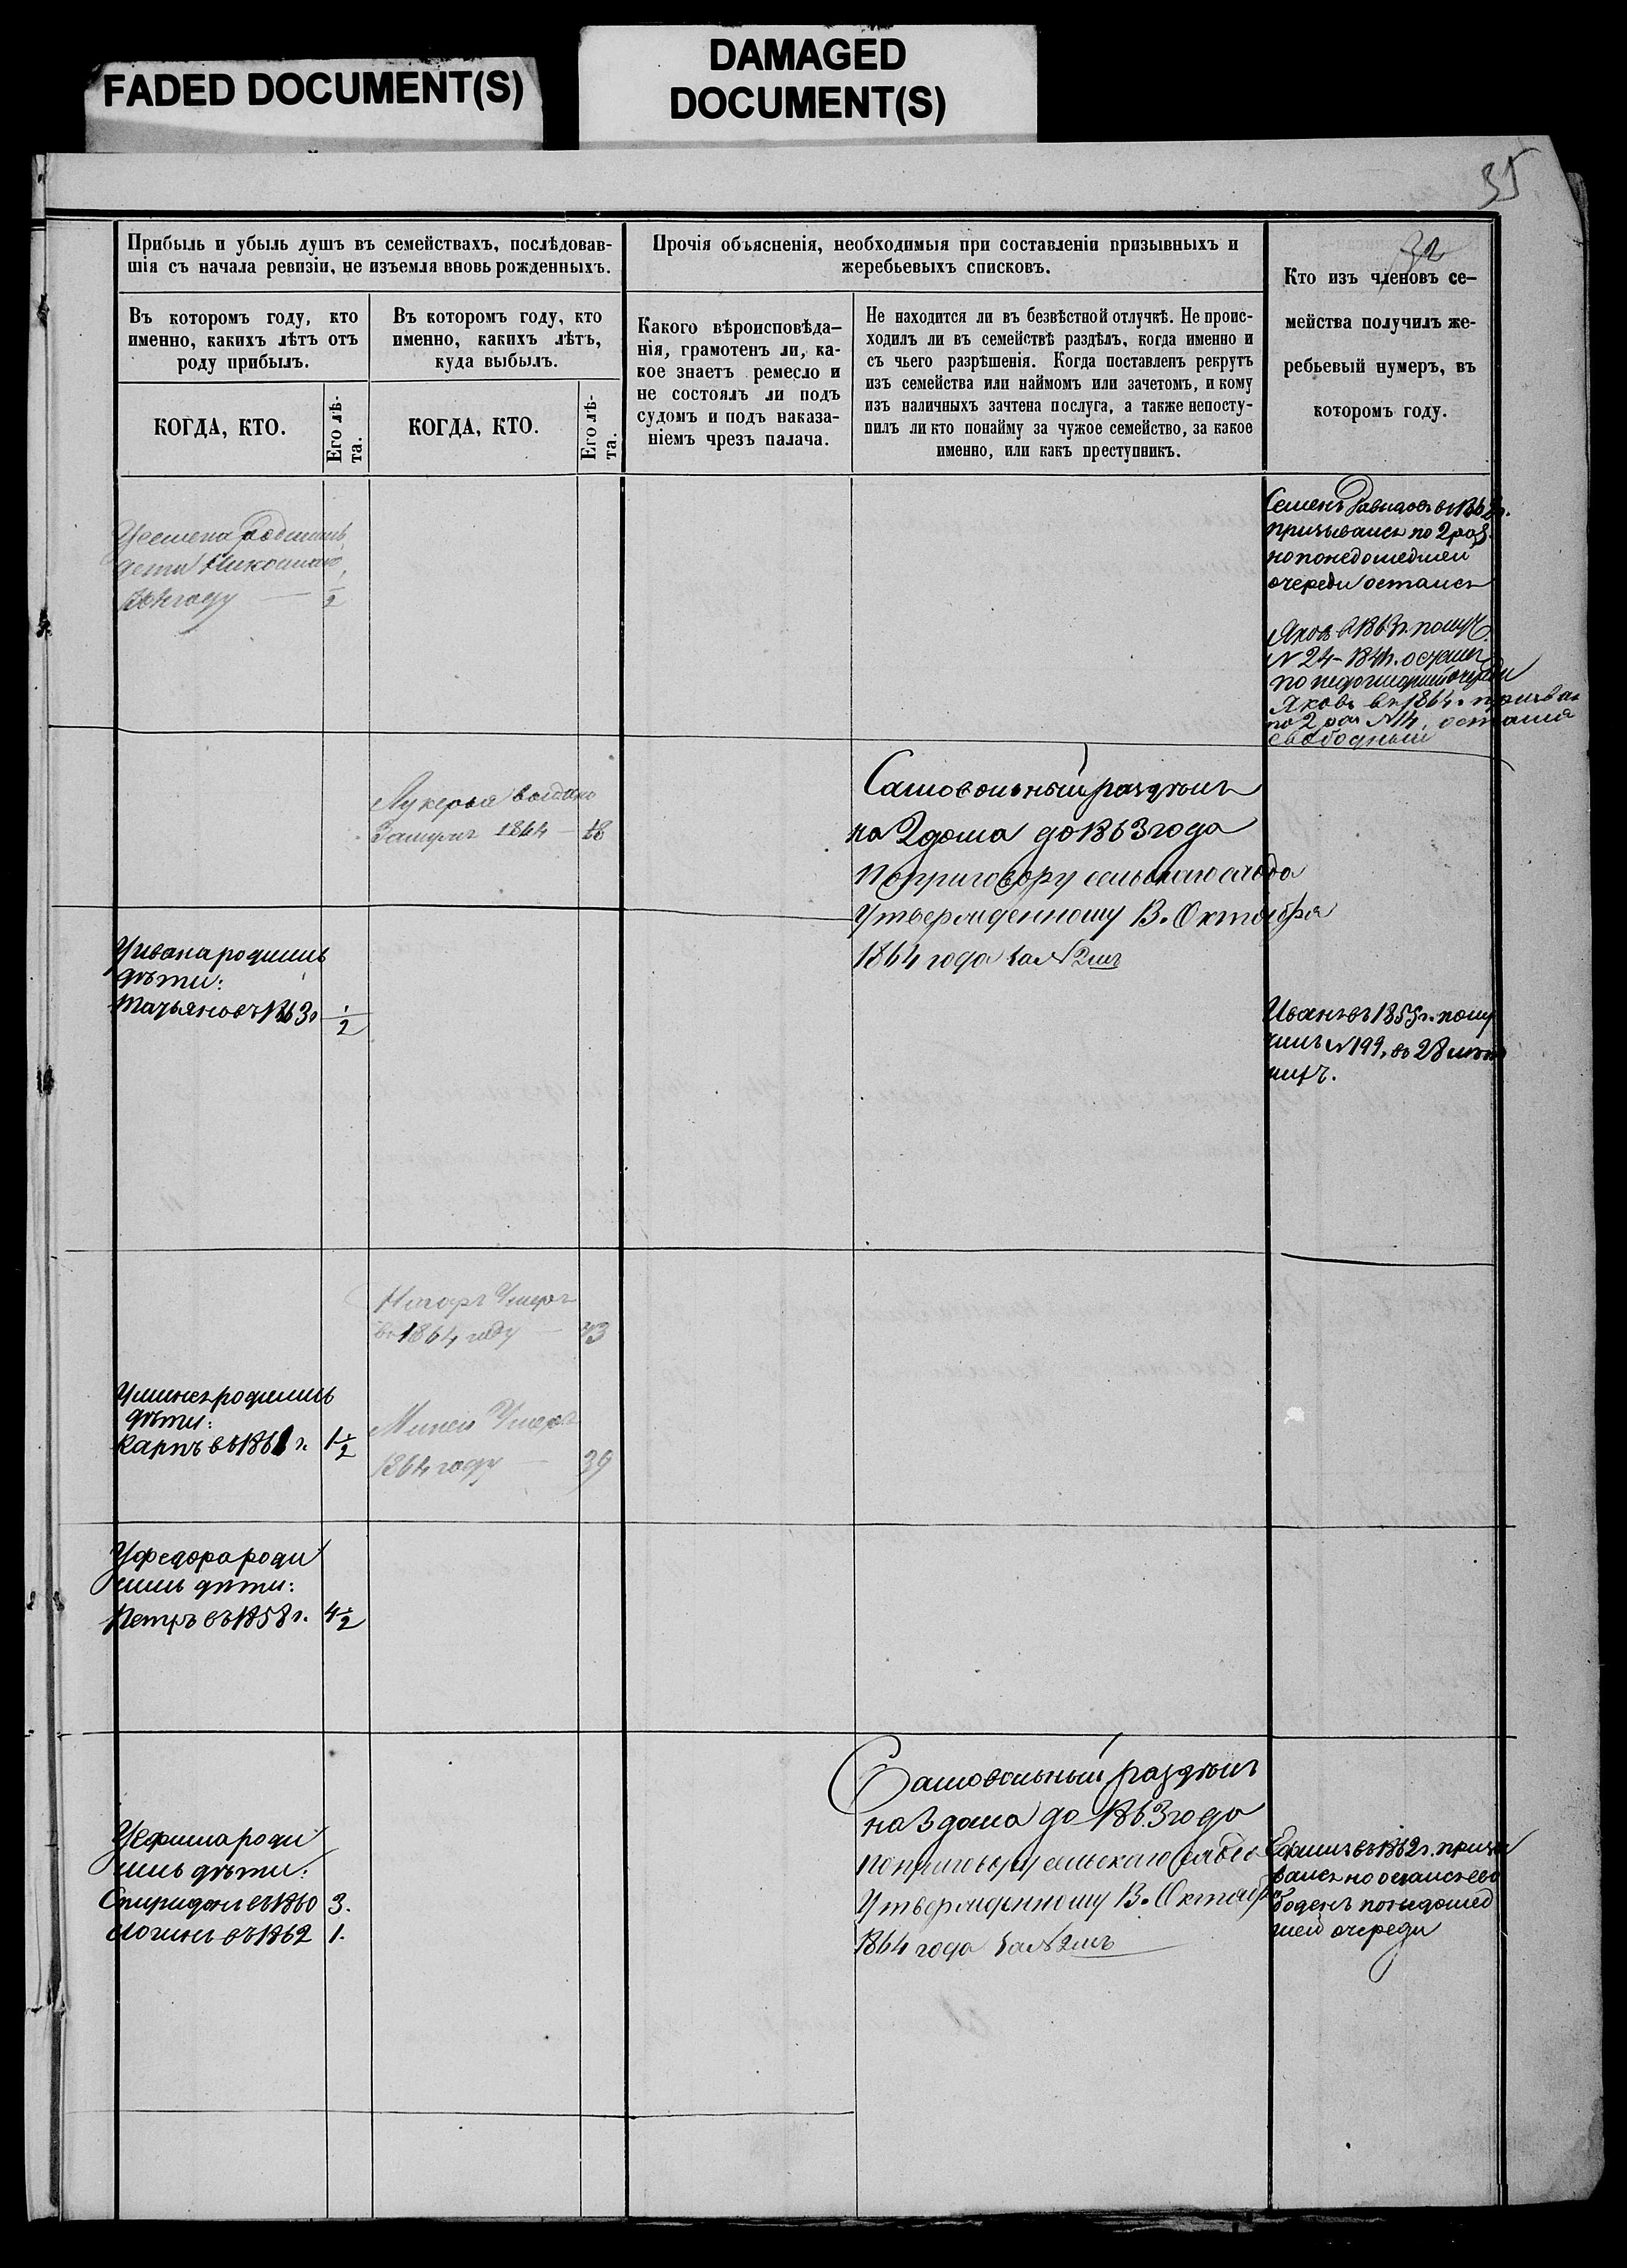 FADED DOCUMENT(S)
DAMAGED
DOCUMENT(S)
35
32
Прибыль и убыль душъ въ семействахъ, послѣдовав-
шія съ начала ревизіи, не изъемля вновь рожденныхъ.
Прочія объясненія, необходимыя при составленіи призывныхъ и
жеребьевыхъ списковъ.
Кто изъ членовъ се-
мейства получилъ же-
ребьевый нумеръ, въ
которомъ году.
Въ которомъ году, кто
именно, какихъ лѣтъ отъ
роду прибылъ.
Въ которомъ году, кто
именно, какихъ лѣтъ,
куда выбылъ.
Какого вѣроисповѣда-
нія, грамотенъ ли, ка-
кое знаетъ ремесло и
не состоялъ ли подъ
судомъ и подъ наказа-
ніемъ чрезъ палача.
Не находится ли въ безвѣстной отлучкѣ. Не проис-
ходилъ ли въ семействѣ раздѣлъ, когда именно и
съ чьего разрѣшенія. Когда поставленъ рекрутъ
изъ семейства или наймомъ или зачетомъ, и кому
изъ наличныхъ зачтена послуга, а также непосту-
пилъ ли кто понайму за чужое семейство, за какое
именно, или какъ преступникъ.
КОГДА, КТО.
Его лѣ-
та.
КОГДА, КТО.
Его лѣ-
та.
Усемена родились
дети
1864 году 1/2
Семенъ Давидовъ в 1862 г.
призывался по 2 раз.
но понедошедшей
очереди остался
Яковъ в 1863 г. получ.
N 24 -
по недошедшей очереди
Яковъ въ 1864 г. призыван
по 2 раз N 14, остался
свободный
Лукерья выдана
Замужъ 1864 - 18
Самовольный раздѣлъ
на 2 дома до 1863 года
По приговору сельскаго схода
Утвержденному 13. Октября
1864 года за N 2мъ
Уивана родились
дѣти:
Татьяна въ 1863 г. 1/2
Иванъ въ 1859 г. полу
чилъ N 199, въ
Умеръ
въ 1864 году - 43
Уминея родились
дѣти:
Карпъ въ 1861 г. 1 1/2
Миней Умеръ
1864 году - 39
Уфедора роди
лись дѣти:
Петръ въ 1858 г. 4 1/2
Самовольный раздѣлъ
на 3 дома до 1863 года
По приговору сельскаго схода
Утвержденному 13. Октября
1864 года за N 2мъ
Уефима роди
лись дѣти:
Спиридонъ въ 1860 3.
Логинъ въ 1862 1.
Ефимъ въ 1862 г. призы
вался но остался сво
боденъ понедошед
шей очереди